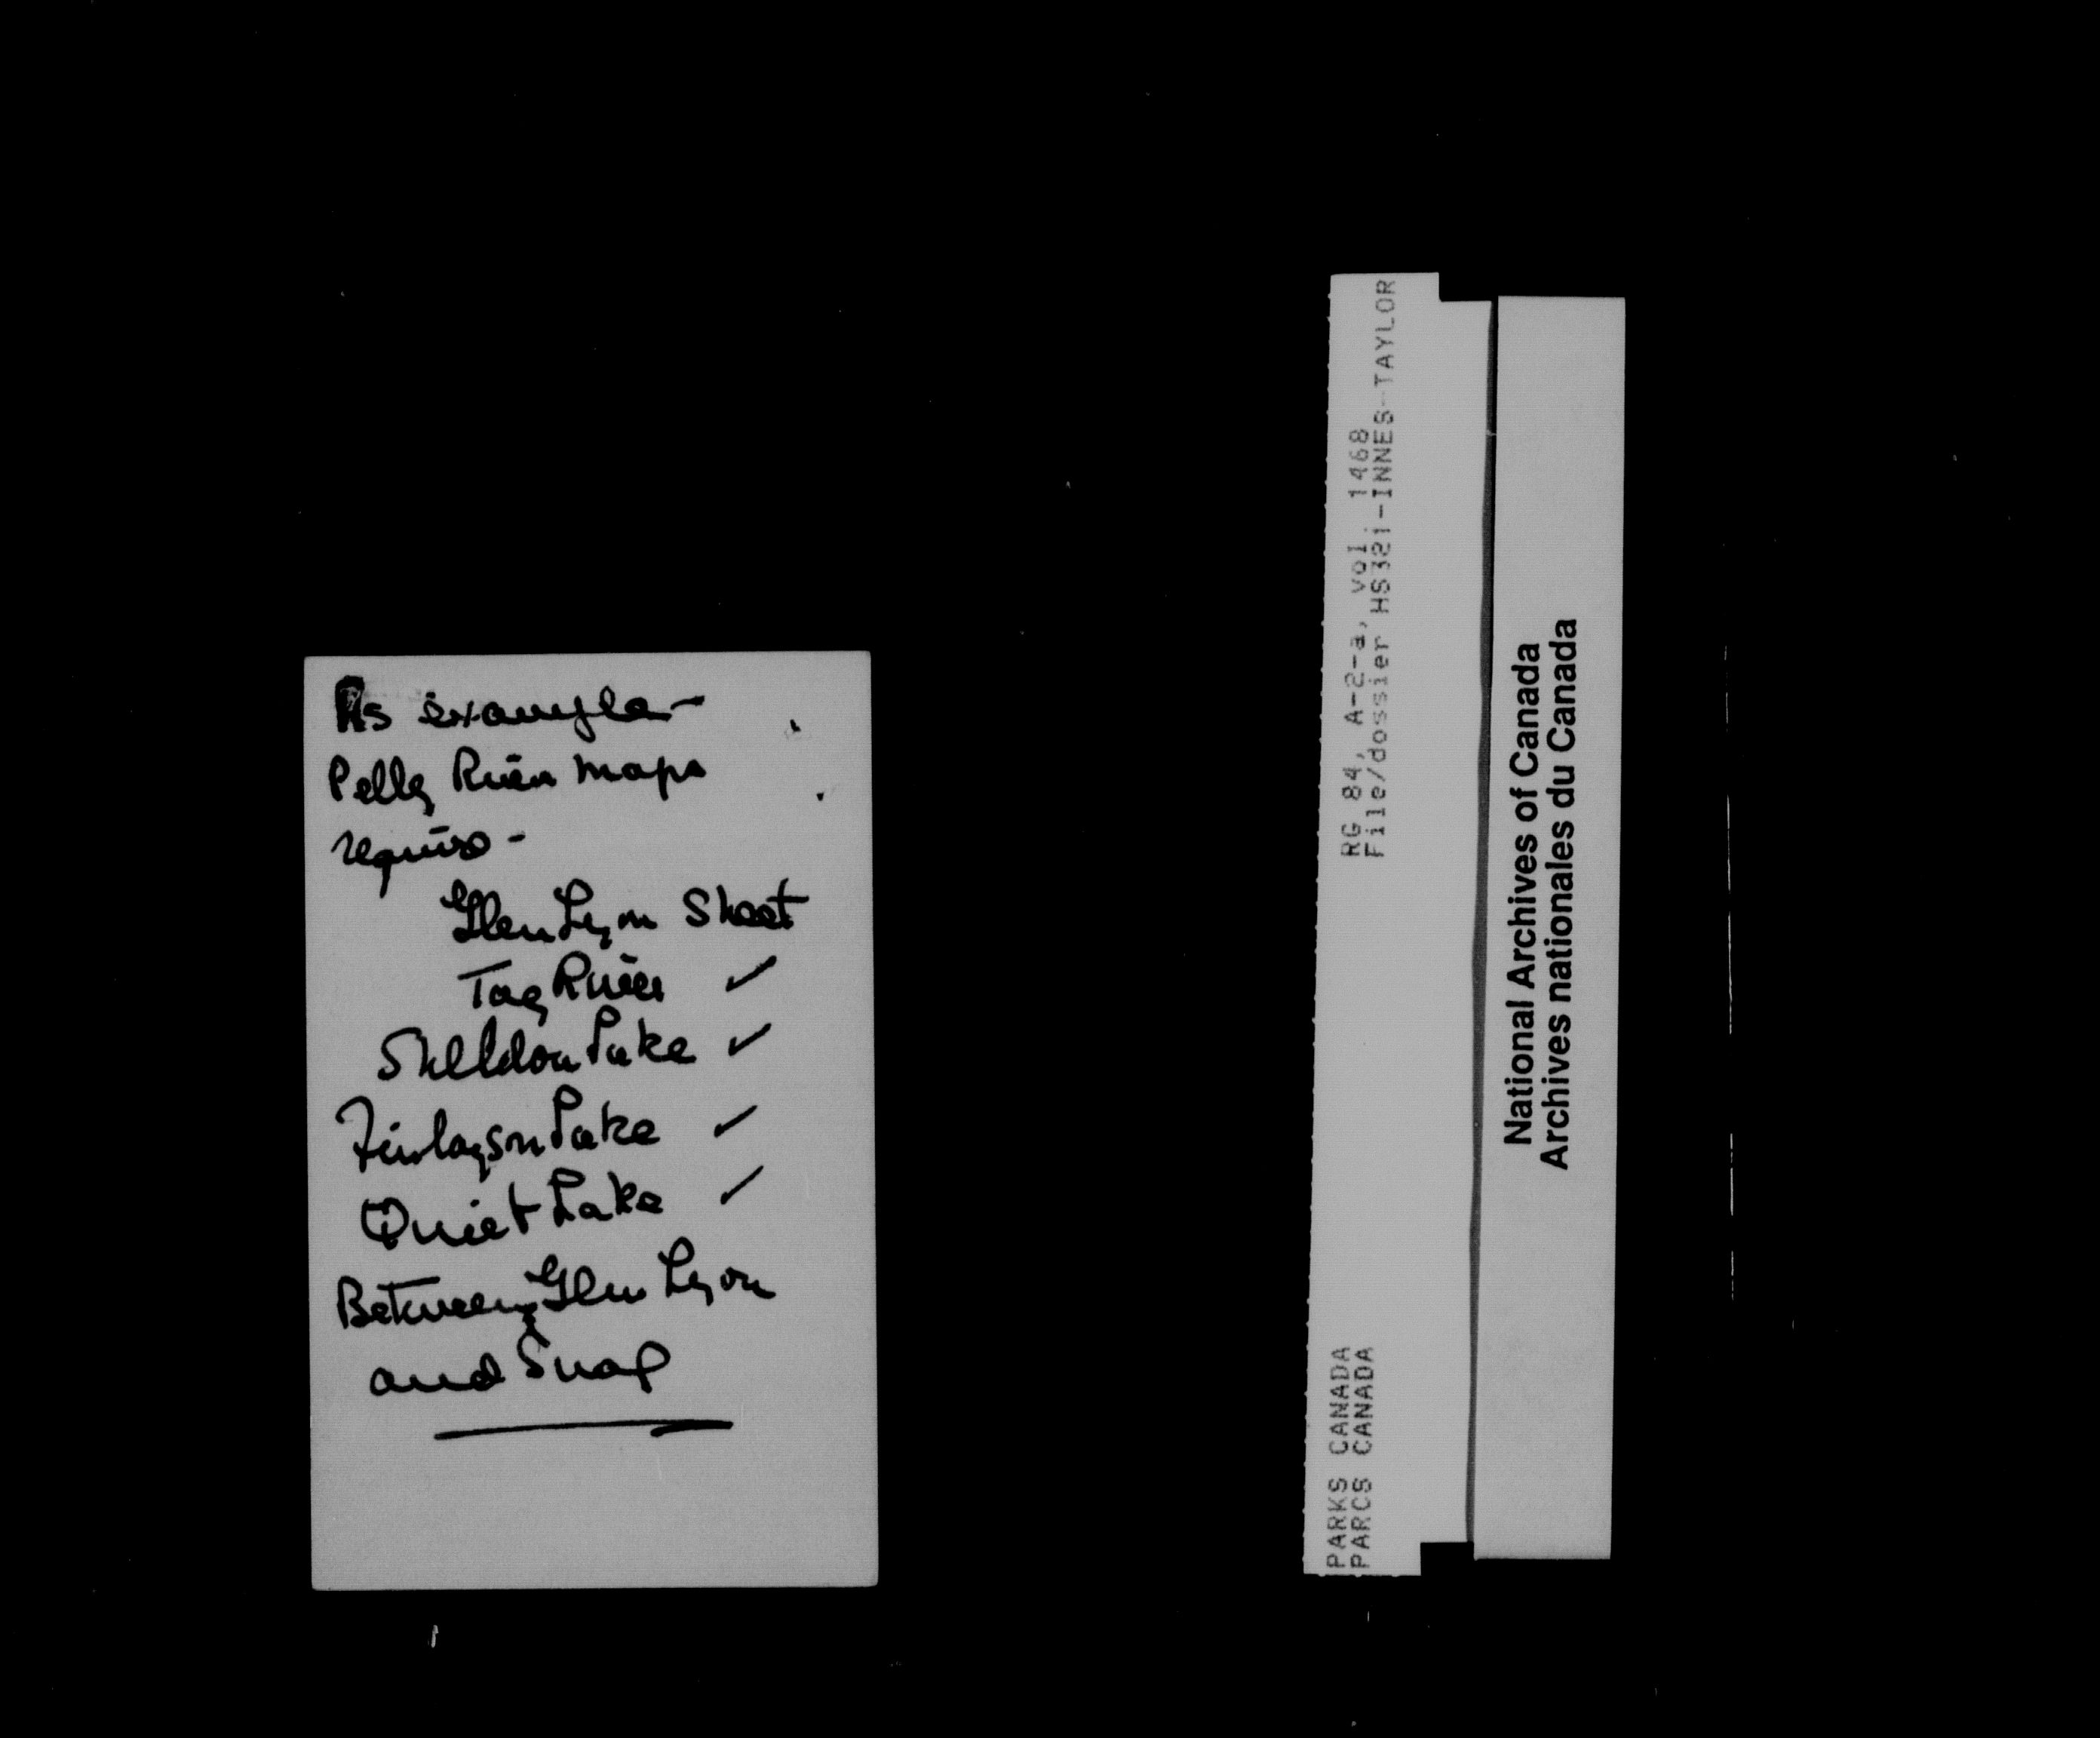 As example -
Pelly River maps
require -
Glen Lyon Sheet
Tay River ✓
Sheldon Lake ✓
Finlayson Lake ✓
Quiet Lake ✓
Between Glen Lyon
and Snap
RG 84, A-2-a, vol. 1468
File/dossier HS321-INNES-TAYLOR
PARKS CANADA
PARCS CANADA
National Archives of Canada
Archives nationales du Canada